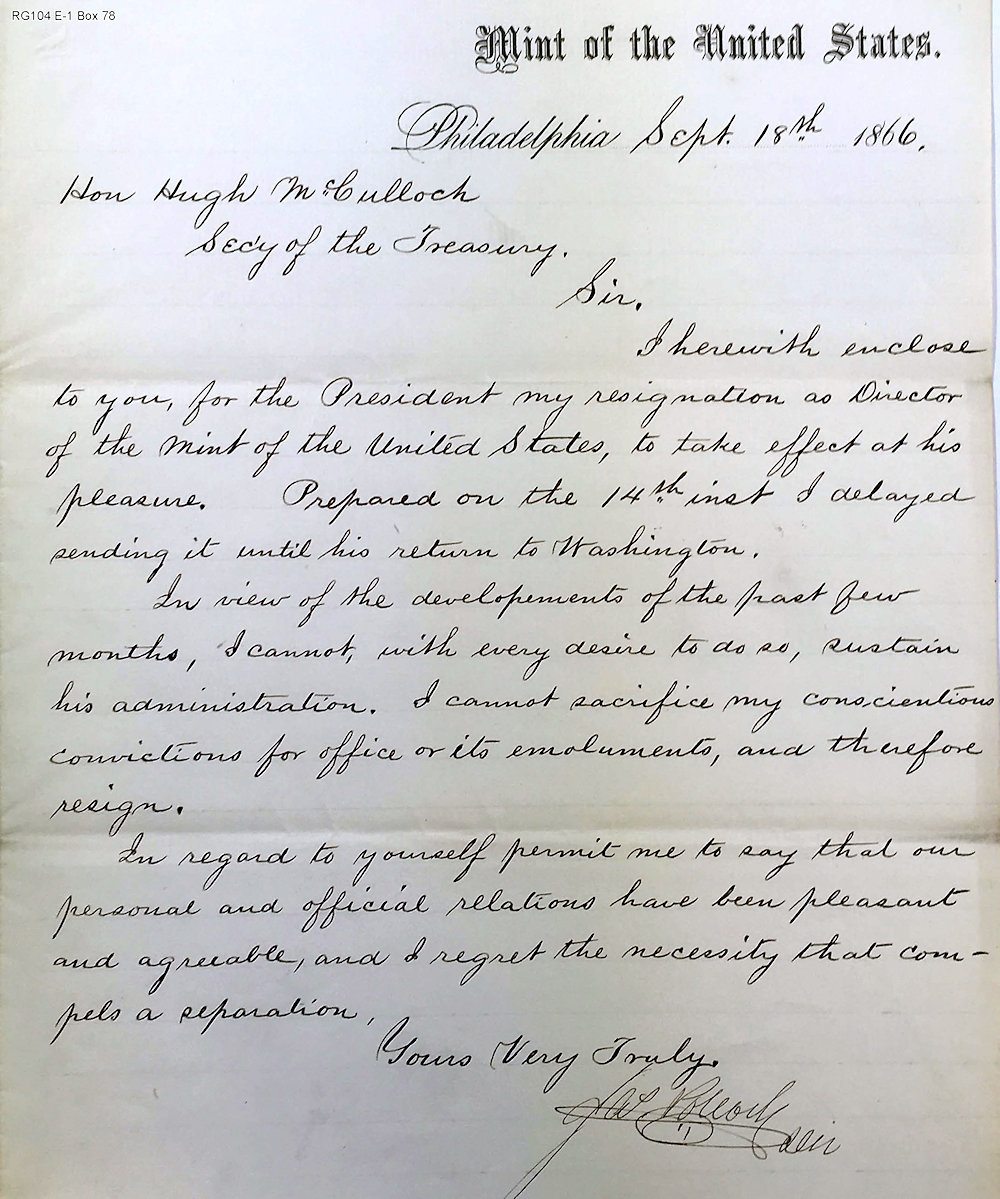 RG104 E-1 Box 78
Mint of the United States.
Philadelphia Sept. 18th 1866.
Hon Hugh McCulloch
Sec'y of the Treasury.
Sir.
I herewith enclose
to you, for the President my resignation as Director
of the Mint of the United States, to take effect at his
pleasure. Prepared on the 14th inst I delayed
sending it until his return to Washington.
In view of the developements of the past few
months, I cannot, with every desire to do so, sustain
his administration. I cannot sacrifice my conscientious
convictions for office or its emoluments, and therefore
resign.
In regard to yourself permit me to say that our
personal and official relations have been pleasant
and agreeable, and I regret the necessity that com-
pels a separation,
Yours Very Truly.
Jas Pollock
Dir